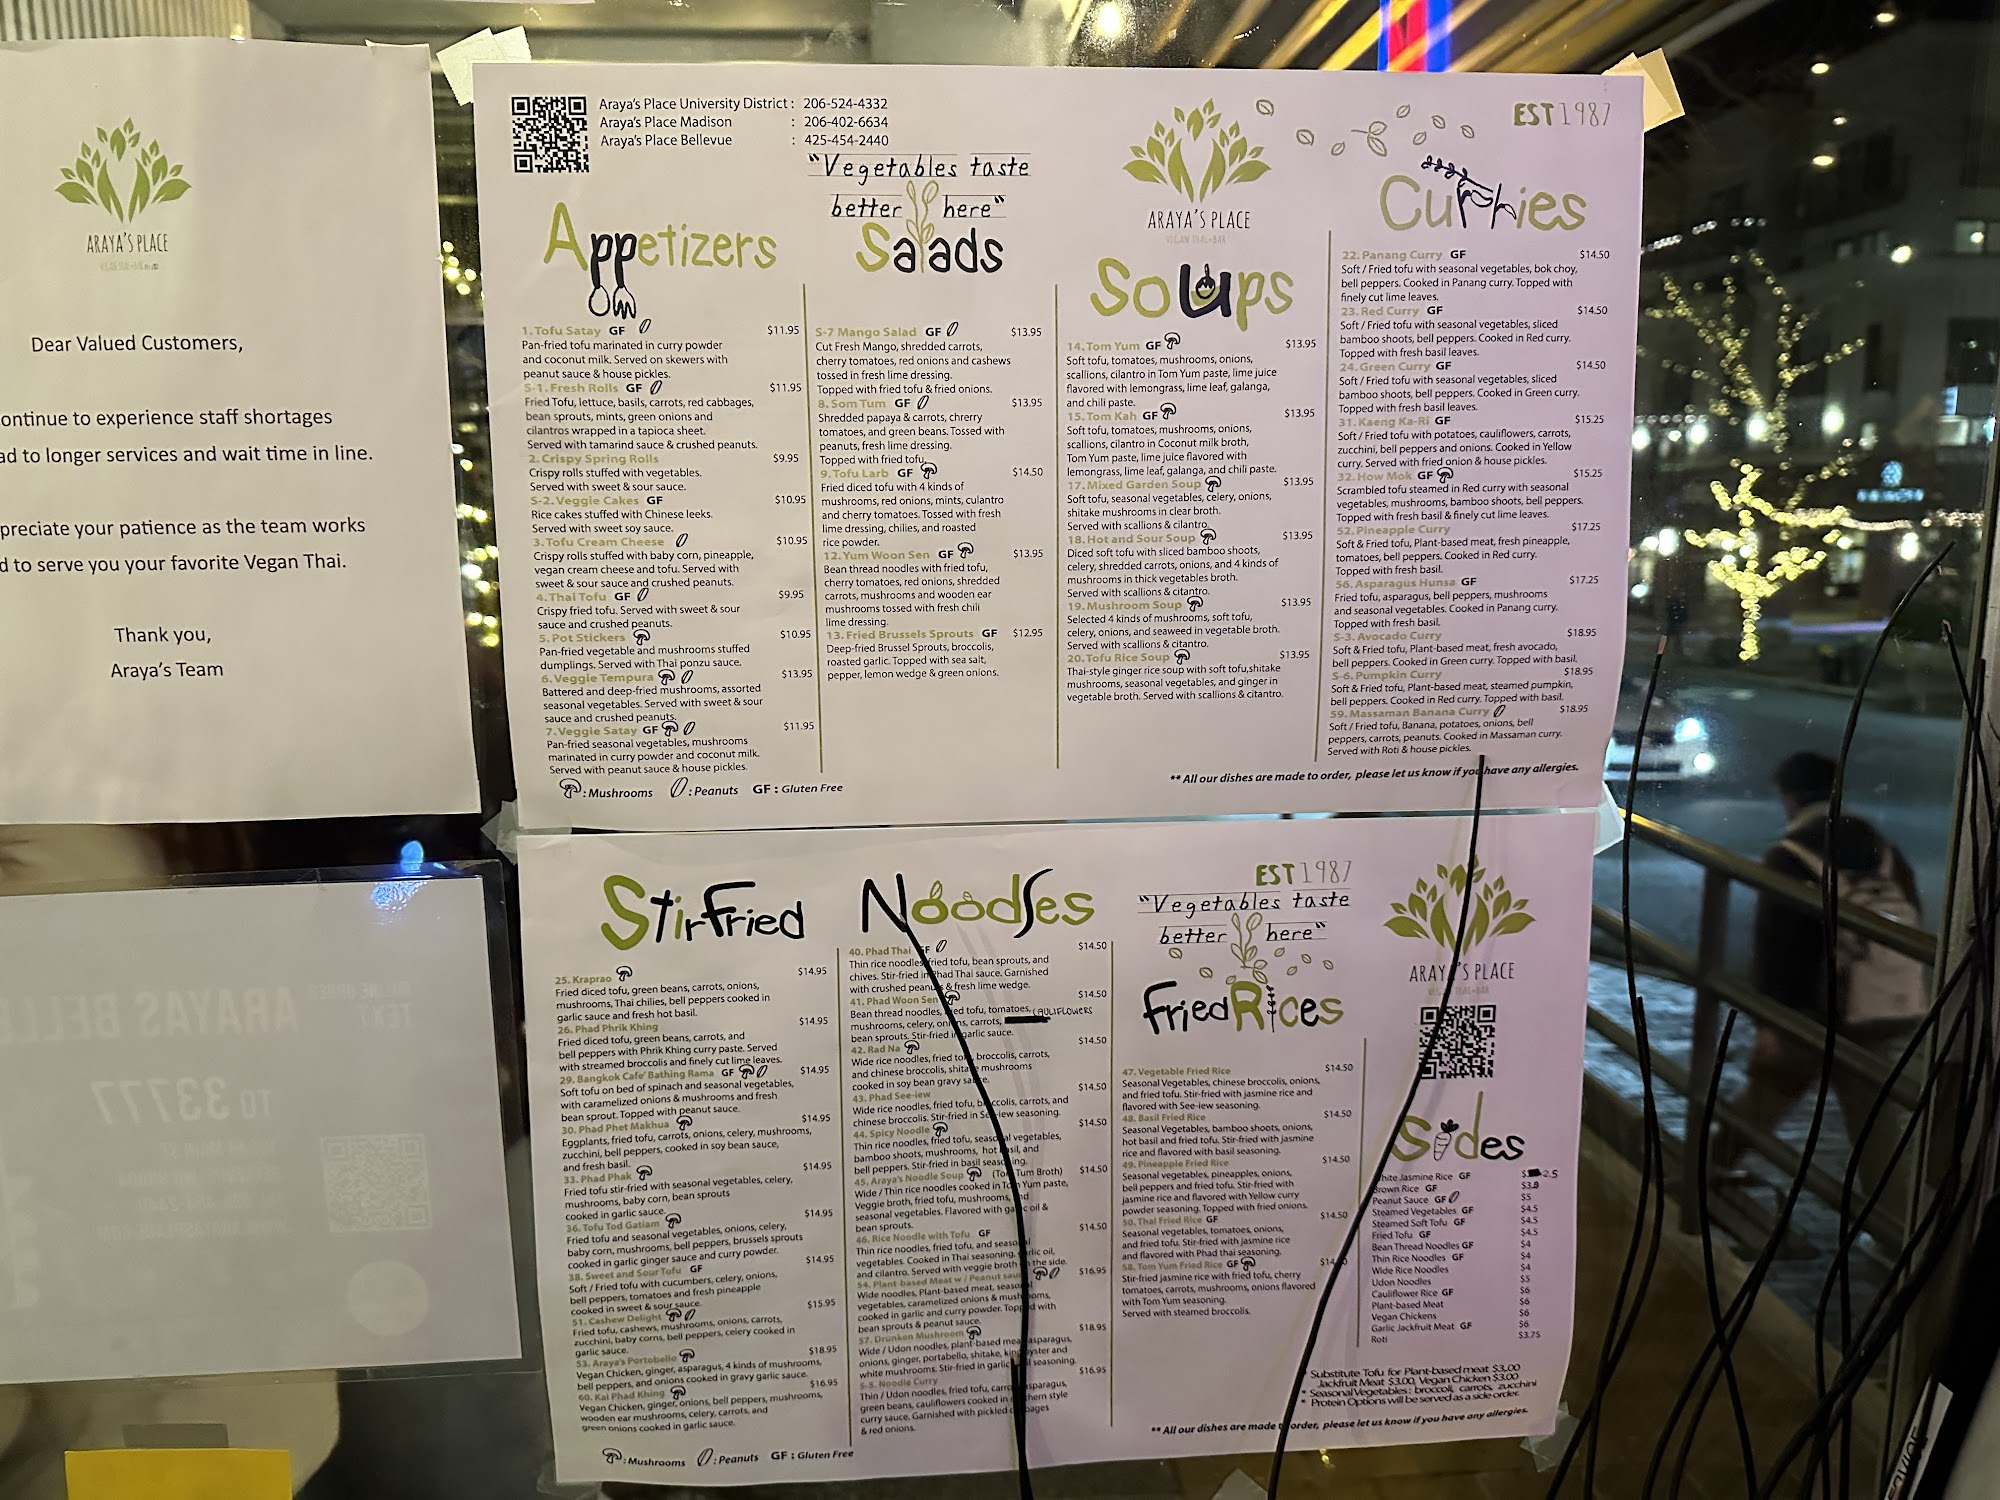 ARAYA'S PLACE
Dear Valued Customers,
ontinue to experience staff shortages
ad to longer services and wait time in line.
preciate your patience as the team works
d to serve you your favorite Vegan Thai.
Thank you,
Araya's Team
Araya's Place University District : 206-524-4332
Araya's Place Madison : 206-402-6634
Araya's Place Bellevue : 425-454-2440
"Vegetables taste
better here"
ARAYA'S PLACE
VEGAN THAI+BAR
EST 1987
Appetizers
1. Tofu Satay GF $11.95
Pan-fried tofu marinated in curry powder
and coconut milk. Served on skewers with
peanut sauce & house pickles.
S-1. Fresh Rolls GF $11.95
Fried Tofu, lettuce, basils, carrots, red cabbages,
bean sprouts, mints, green onions and
cilantros wrapped in a tapioca sheet.
Served with tamarind sauce & crushed peanuts.
2. Crispy Spring Rolls $9.95
Crispy rolls stuffed with vegetables.
Served with sweet & sour sauce.
S-2. Veggie Cakes GF $10.95
Rice cakes stuffed with Chinese leeks.
Served with sweet soy sauce.
3. Tofu Cream Cheese $10.95
Crispy rolls stuffed with baby corn, pineapple,
vegan cream cheese and tofu. Served with
sweet & sour sauce and crushed peanuts.
4. Thai Tofu GF $9.95
Crispy fried tofu. Served with sweet & sour
sauce and crushed peanuts.
5. Pot Stickers $10.95
Pan-fried vegetable and mushrooms stuffed
dumplings. Served with Thai ponzu sauce.
6. Veggie Tempura $13.95
Battered and deep-fried mushrooms, assorted
seasonal vegetables. Served with sweet & sour
sauce and crushed peanuts.
7. Veggie Satay GF $11.95
Pan-fried seasonal vegetables, mushrooms
marinated in curry powder and coconut milk.
Served with peanut sauce & house pickles.
: Mushrooms : Peanuts GF : Gluten Free
Salads
S-7 Mango Salad GF $13.95
Cut Fresh Mango, shredded carrots,
cherry tomatoes, red onions and cashews
tossed in fresh lime dressing.
Topped with fried tofu & fried onions.
8. Som Tum GF $13.95
Shredded papaya & carrots, chrerry
tomatoes, and green beans. Tossed with
peanuts, fresh lime dressing.
Topped with fried tofu.
9. Tofu Larb GF $14.50
Fried diced tofu with 4 kinds of
mushrooms, red onions, mints, culantro
and cherry tomatoes. Tossed with fresh
lime dressing, chilies, and roasted
rice powder.
12. Yum Woon Sen GF $13.95
Bean thread noodles with fried tofu,
cherry tomatoes, red onions, shredded
carrots, mushrooms and wooden ear
mushrooms tossed with fresh chili
lime dressing.
13. Fried Brussels Sprouts GF $12.95
Deep-fried Brussel Sprouts, broccolis,
roasted garlic. Topped with sea salt,
pepper, lemon wedge & green onions.
Soups
14. Tom Yum GF $13.95
Soft tofu, tomatoes, mushrooms, onions,
scallions, cilantro in Tom Yum paste, lime juice
flavored with lemongrass, lime leaf, galanga,
and chili paste.
15. Tom Kah GF $13.95
Soft tofu, tomatoes, mushrooms, onions,
scallions, cilantro in Coconut milk broth,
Tom Yum paste, lime juice flavored with
lemongrass, lime leaf, galanga, and chili paste.
17. Mixed Garden Soup $13.95
Soft tofu, seasonal vegetables, celery, onions,
shitake mushrooms in clear broth.
Served with scallions & cilantro.
18. Hot and Sour Soup $13.95
Diced soft tofu with sliced bamboo shoots,
celery, shredded carrots, onions, and 4 kinds of
mushrooms in thick vegetables broth.
Served with scallions & citantro.
19. Mushroom Soup $13.95
Selected 4 kinds of mushrooms, soft tofu,
celery, onions, and seaweed in vegetable broth.
Served with scallions & citantro.
20. Tofu Rice Soup $13.95
Thai-style ginger rice soup with soft tofu,shitake
mushrooms, seasonal vegetables, and ginger in
vegetable broth. Served with scallions & citantro.
Curries
22. Panang Curry GF $14.50
Soft / Fried tofu with seasonal vegetables, bok choy,
bell peppers. Cooked in Panang curry. Topped with
finely cut lime leaves.
23. Red Curry GF $14.50
Soft / Fried tofu with seasonal vegetables, sliced
bamboo shoots, bell peppers. Cooked in Red curry.
Topped with fresh basil leaves.
24. Green Curry GF $14.50
Soft / Fried tofu with seasonal vegetables, sliced
bamboo shoots, bell peppers. Cooked in Green curry.
Topped with fresh basil leaves.
31. Kaeng Ka-Ri GF $15.25
Soft / Fried tofu with potatoes, cauliflowers, carrots,
zucchini, bell peppers and onions. Cooked in Yellow
curry. Served with fried onion & house pickles.
32. How Mok GF $15.25
Scrambled tofu steamed in Red curry with seasonal
vegetables, mushrooms, bamboo shoots, bell peppers.
Topped with fresh basil & finely cut lime leaves.
52. Pineapple Curry $17.25
Soft & Fried tofu, Plant-based meat, fresh pineapple,
tomatoes, bell peppers. Cooked in Red curry.
Topped with fresh basil.
56. Asparagus Hunsa GF $17.25
Fried tofu, asparagus, bell peppers, mushrooms
and seasonal vegetables. Cooked in Panang curry.
Topped with fresh basil.
S-3. Avocado Curry $18.95
Soft & Fried tofu, Plant-based meat, fresh avocado,
bell peppers. Cooked in Green curry. Topped with basil.
S-6. Pumpkin Curry $18.95
Soft & Fried tofu, Plant-based meat, steamed pumpkin,
bell peppers. Cooked in Red curry. Topped with basil.
59. Massaman Banana Curry $18.95
Soft / Fried tofu, Banana, potatoes, onions, bell
peppers, carrots, peanuts. Cooked in Massaman curry.
Served with Roti & house pickles.
** All our dishes are made to order, please let us know if you have any allergies.
StirFried
25. Kraprao $14.95
Fried diced tofu, green beans, carrots, onions,
mushrooms, Thai chilies, bell peppers cooked in
garlic sauce and fresh hot basil.
26. Phad Phrik Khing $14.95
Fried diced tofu, green beans, carrots, and
bell peppers with Phrik Khing curry paste. Served
with streamed broccolis and finely cut lime leaves.
29. Bangkok Cafe' Bathing Rama GF $14.95
Soft tofu on bed of spinach and seasonal vegetables,
with caramelized onions & mushrooms and fresh
bean sprout. Topped with peanut sauce.
30. Phad Phet Makhua $14.95
Eggplants, fried tofu, carrots, onions, celery, mushrooms,
zucchini, bell peppers, cooked in soy bean sauce,
and fresh basil.
33. Phad Phak $14.95
Fried tofu stir-fried with seasonal vegetables, celery,
mushrooms, baby corn, bean sprouts
cooked in garlic sauce.
36. Tofu Tod Gatiam $14.95
Fried tofu and seasonal vegetables, onions, celery,
baby corn, mushrooms, bell peppers, brussels sprouts
cooked in garlic ginger sauce and curry powder.
38. Sweet and Sour Tofu GF $14.95
Soft / Fried tofu with cucumbers, celery, onions,
bell peppers, tomatoes and fresh pineapple
cooked in sweet & sour sauce.
51. Cashew Delight $15.95
Fried tofu, cashews, mushrooms, onions, carrots,
zucchini, baby corns, bell peppers, celery cooked in
garlic sauce.
53. Araya's Portobello $18.95
Vegan Chicken, ginger, asparagus, 4 kinds of mushrooms,
bell peppers, and onions cooked in gravy garlic sauce.
60. Kai Phad Khing $16.95
Vegan Chicken, ginger, onions, bell peppers, mushrooms,
wooden ear mushrooms, celery, carrots, and
green onions cooked in garlic sauce.
: Mushrooms : Peanuts GF : Gluten Free
Noodles
40. Phad Thai GF $14.50
Thin rice noodles, fried tofu, bean sprouts, and
chives. Stir-fried in Phad Thai sauce. Garnished
with crushed peanuts & fresh lime wedge.
41. Phad Woon Sen $14.50
Bean thread noodles, fried tofu, tomatoes,
mushrooms, celery, onions, carrots, CAULIFLOWERS
bean sprouts. Stir-fried in garlic sauce.
42. Rad Na $14.50
Wide rice noodles, fried tofu, broccolis, carrots,
and chinese broccolis, shitake mushrooms
cooked in soy bean gravy sauce.
43. Phad See-iew $14.50
Wide rice noodles, fried tofu, broccolis, carrots, and
chinese broccolis. Stir-fried in See-iew seasoning.
44. Spicy Noodle $14.50
Thin rice noodles, fried tofu, seasonal vegetables,
bamboo shoots, mushrooms, hot basil, and
bell peppers. Stir-fried in basil seasoning.
45. Araya's Noodle Soup (Tom Tum Broth) $14.50
Wide / Thin rice noodles cooked in Tom Yum paste,
Veggie broth, fried tofu, mushrooms, and
seasonal vegetables. Flavored with garlic oil &
bean sprouts.
46. Rice Noodle with Tofu GF $14.50
Thin rice noodles, fried tofu, and seasonal
vegetables. Cooked in Thai seasoning, garlic oil,
and cilantro. Served with veggie broth on the side.
54. Plant-based Meat w / Peanut sauce $16.95
Wide noodles, Plant-based meat, seasonal
vegetables, caramelized onions & mushrooms,
cooked in garlic and curry powder. Topped with
bean sprouts & peanut sauce.
57. Drunken Mushroom $18.95
Wide / Udon noodles, plant-based meat, asparagus,
onions, ginger, portabello, shitake, king oyster and
white mushrooms. Stir-fried in garlic seasoning.
S-5. Noodle Curry $16.95
Thin / Udon noodles, fried tofu, carrots, asparagus,
green beans, cauliflowers cooked in northern style
curry sauce. Garnished with pickled cabbages
& red onions.
EST 1987
"Vegetables taste
better here"
FriedRices
47. Vegetable Fried Rice $14.50
Seasonal Vegetables, chinese broccolis, onions,
and fried tofu. Stir-fried with jasmine rice and
flavored with See-iew seasoning.
48. Basil Fried Rice $14.50
Seasonal Vegetables, bamboo shoots, onions,
hot basil and fried tofu. Stir-fried with jasmine
rice and flavored with basil seasoning.
49. Pineapple Fried Rice $14.50
Seasonal vegetables, pineapples, onions,
bell peppers and fried tofu. Stir-fried with
jasmine rice and flavored with Yellow curry
powder seasoning. Topped with fried onions.
50. Thai Fried Rice GF $14.50
Seasonal vegetables, tomatoes, onions,
and fried tofu. Stir-fried with jasmine rice
and flavored with Phad thai seasoning.
58. Tom Yum Fried Rice GF $14.
Stir-fried jasmine rice with fried tofu, cherry
tomatoes, carrots, mushrooms, onions flavored
with Tom Yum seasoning.
Served with steamed broccolis.
ARAYA'S PLACE
Sides
White Jasmine Rice GF $ 2.5
Brown Rice GF
Peanut Sauce GF $5
Steamed Vegetables GF $4.5
Steamed Soft Tofu GF $4.5
Fried Tofu GF $4.5
Bean Thread Noodles GF $4
Thin Rice Noodles GF $4
Wide Rice Noodles $4
Udon Noodles $5
Cauliflower Rice GF $6
Plant-based Meat $6
Vegan Chickens $6
Garlic Jackfruit Meat GF $6
Roti $3.75
* Substitute Tofu for Plant-based meat $3.00
Jackfruit Meat $3.00, Vegan Chicken $3.00
* Seasonal Vegetables : broccoli, carrots, zucchini
* Protein Options will be served as a side order.
** All our dishes are made to order, please let us know if you have any allergies.
TEXT ARAYAS BELLE
TO 33777